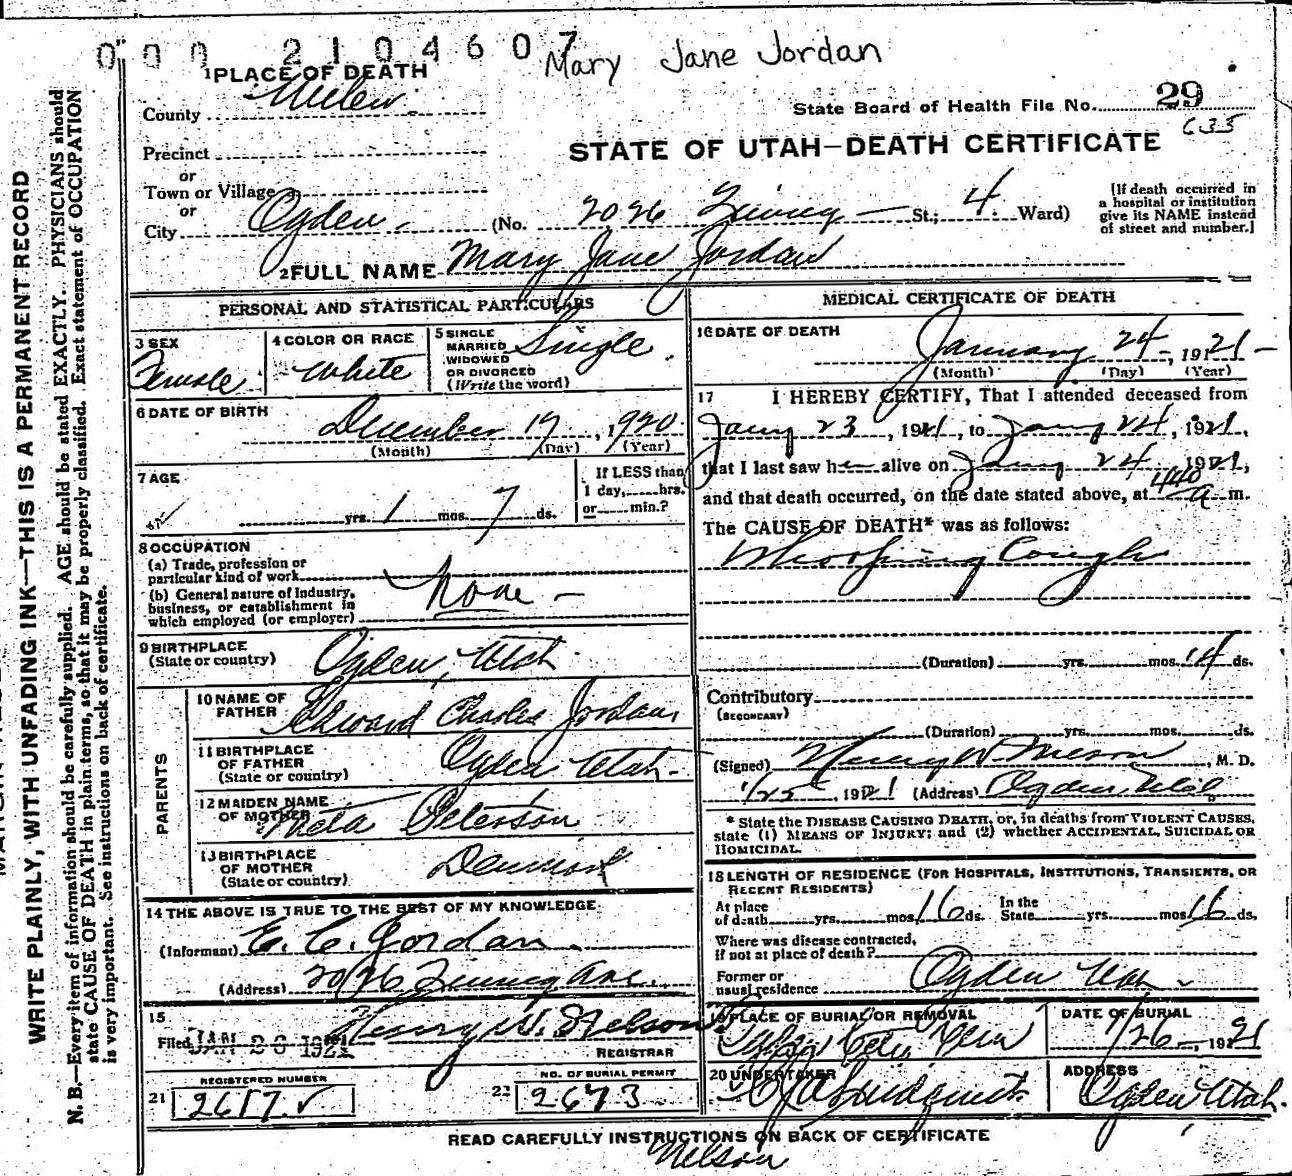 000 2104607
Mary Jane Jordan
1 PLACE OF DEATH
County
State Board of Health File No. 29
635
Precinct
or
Town or Village
or
City Ogden
STATE OF UTAH—DEATH CERTIFICATE
(No. 2026 St.; 4 Ward)
[If death occurred in
a hospital or institution
give its NAME instead
of street and number.]
2 FULL NAME Mary Jane Jordan
PERSONAL AND STATISTICAL PARTICULARS
3 SEX
Female
4 COLOR OR RACE
White
5 SINGLE
MARRIED
WIDOWED
OR DIVORCED
(Write the word)
Single
6 DATE OF BIRTH
December 17, 1920
(Month) (Day) (Year)
7 AGE
yrs. 1 mos. 7 ds.
If LESS than
1 day, hrs.
or min.?
8 OCCUPATION
(a) Trade, profession or
particular kind of work
(b) General nature of Industry,
business, or establishment in
which employed (or employer)
None —
9 BIRTHPLACE
(State or country)
Ogden, Utah
PARENTS
10 NAME OF
FATHER
Edward Charles Jordan
11 BIRTHPLACE
OF FATHER
(State or country)
Ogden Utah
12 MAIDEN NAME
OF MOTHER
Meta Peterson
13 BIRTHPLACE
OF MOTHER
(State or country)
Denmark
14 THE ABOVE IS TRUE TO THE BEST OF MY KNOWLEDGE
(Informant) E. C. Jordan
(Address) 2026 Ave.
15
Filed JAN 26 1921 Henry W. Nelson
REGISTRAR
REGISTERED NUMBER
21 2617
NO. OF BURIAL PERMIT
22 2673
MEDICAL CERTIFICATE OF DEATH
16 DATE OF DEATH
January 24, 1921
(Month) (Day) (Year)
17 I HEREBY CERTIFY, That I attended deceased from
Jany 23, 1921, to Jany 24, 1921,
that I last saw her alive on Jany 24 1921,
and that death occurred, on the date stated above, at 440 a m.
The CAUSE OF DEATH* was as follows:
Whooping Cough
(Duration) yrs. mos. 14 ds.
Contributory
(SECONDARY)
(Duration) yrs. mos. ds.
(Signed) M. D.
1/25, 1921 (Address) Ogden, Utah
* State the DISEASE CAUSING DEATH, or, in deaths from VIOLENT CAUSES,
state (1) MEANS OF INJURY; and (2) whether ACCIDENTAL, SUICIDAL OR
HOMICIDAL.
18 LENGTH OF RESIDENCE (FOR HOSPITALS, INSTITUTIONS, TRANSIENTS, OR
RECENT RESIDENTS)
At place
of death yrs. mos. 16 ds.
In the
State yrs. mos. 16 ds.
Where was disease contracted,
if not at place of death?
Former or
usual residence
Ogden Utah
19 PLACE OF BURIAL OR REMOVAL
DATE OF BURIAL
1/26, 1921
20 UNDERTAKER
ADDRESS
Ogden, Utah.
READ CAREFULLY INSTRUCTIONS ON BACK OF CERTIFICATE
Nelson
WRITE PLAINLY, WITH UNFADING INK—THIS IS A PERMANENT RECORD
N. B.—Every item of information should be carefully supplied. AGE should be stated EXACTLY. PHYSICIANS should
state CAUSE OF DEATH in plain terms, so that it may be properly classified. Exact statement of OCCUPATION
is very important. See instructions on back of certificate.